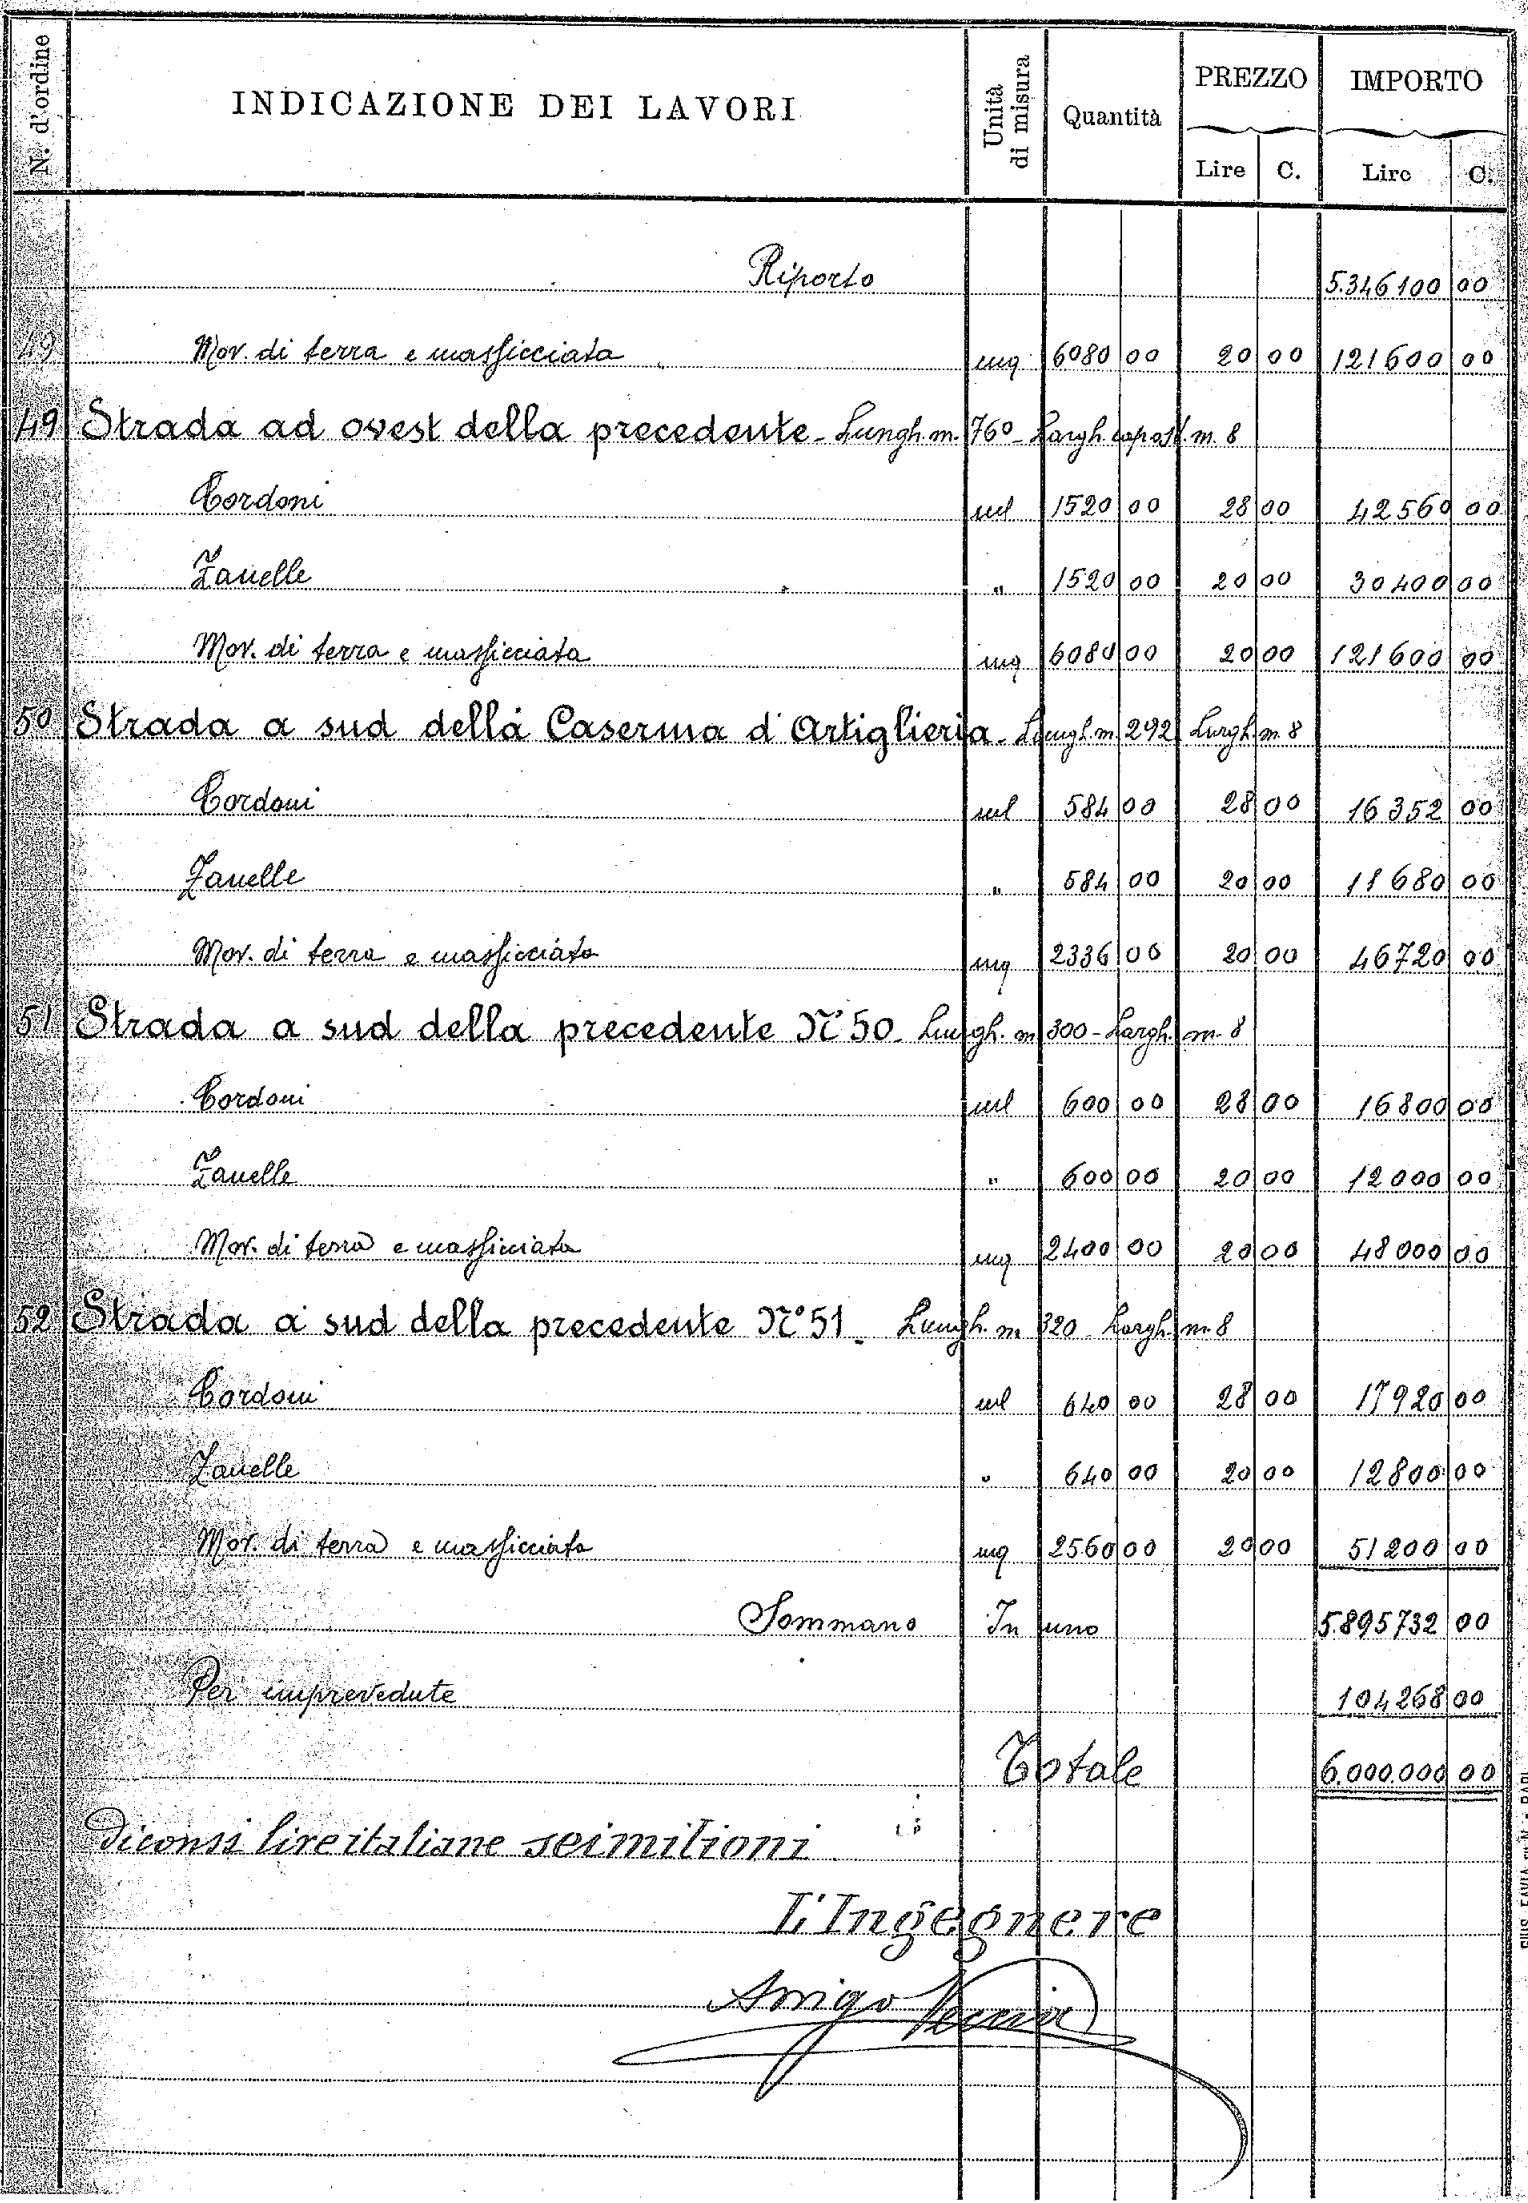 N. d'ordine INDICAZIONE DEI LAVORI Unità di misura Quantità PREZZO IMPORTO
Lire C. Lire C.
Riporto 5.346100 00
49 Mov. di terra e massicciata mq 6080 00 20 00 121600 00
49 Strada ad ovest della precedente - Lungh. m. 760 - Largh. m. 8
Cordoni ml 1520 00 28 00 42560 00
Zanelle " 1520 00 20 00 30400 00
Mov. di terra e massicciata mq 6080 00 20 00 121600 00
50 Strada a sud della Caserma d'Artiglieria - Lungh. m. 292 Largh. m. 8
Cordoni ml 584 00 28 00 16352 00
Zanelle " 584 00 20 00 11680 00
Mov. di terra e massicciata mq 2336 00 20 00 46720 00
51 Strada a sud della precedente N° 50 - Lungh. m. 300 - Largh. m. 8
Cordoni ml 600 00 28 00 16800 00
Zanelle " 600 00 20 00 12000 00
Mov. di terra e massicciata mq 2400 00 20 00 48000 00
52 Strada a sud della precedente N° 51 - Lungh. m. 320 - Largh. m. 8
Cordoni ml 640 00 28 00 17920 00
Zanelle " 640 00 20 00 12800 00
Mov. di terra e massicciata mq 2560 00 20 00 51200 00
Sommano In uno 5.895732 00
Per imprevedute 104268 00
Totale 6.000.000 00
Diconsi lire italiane seimilioni
L'Ingegnere
Arrigo Veccia